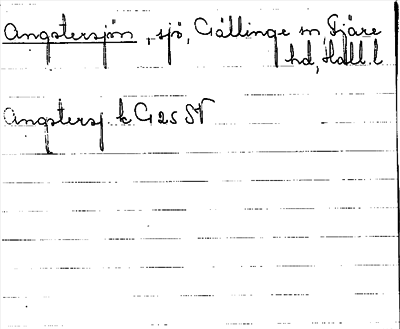 Angstersjön, sjö, Gällinge sn, Fjäre
hd, Hall. l
Angstersj. k G 25 SV